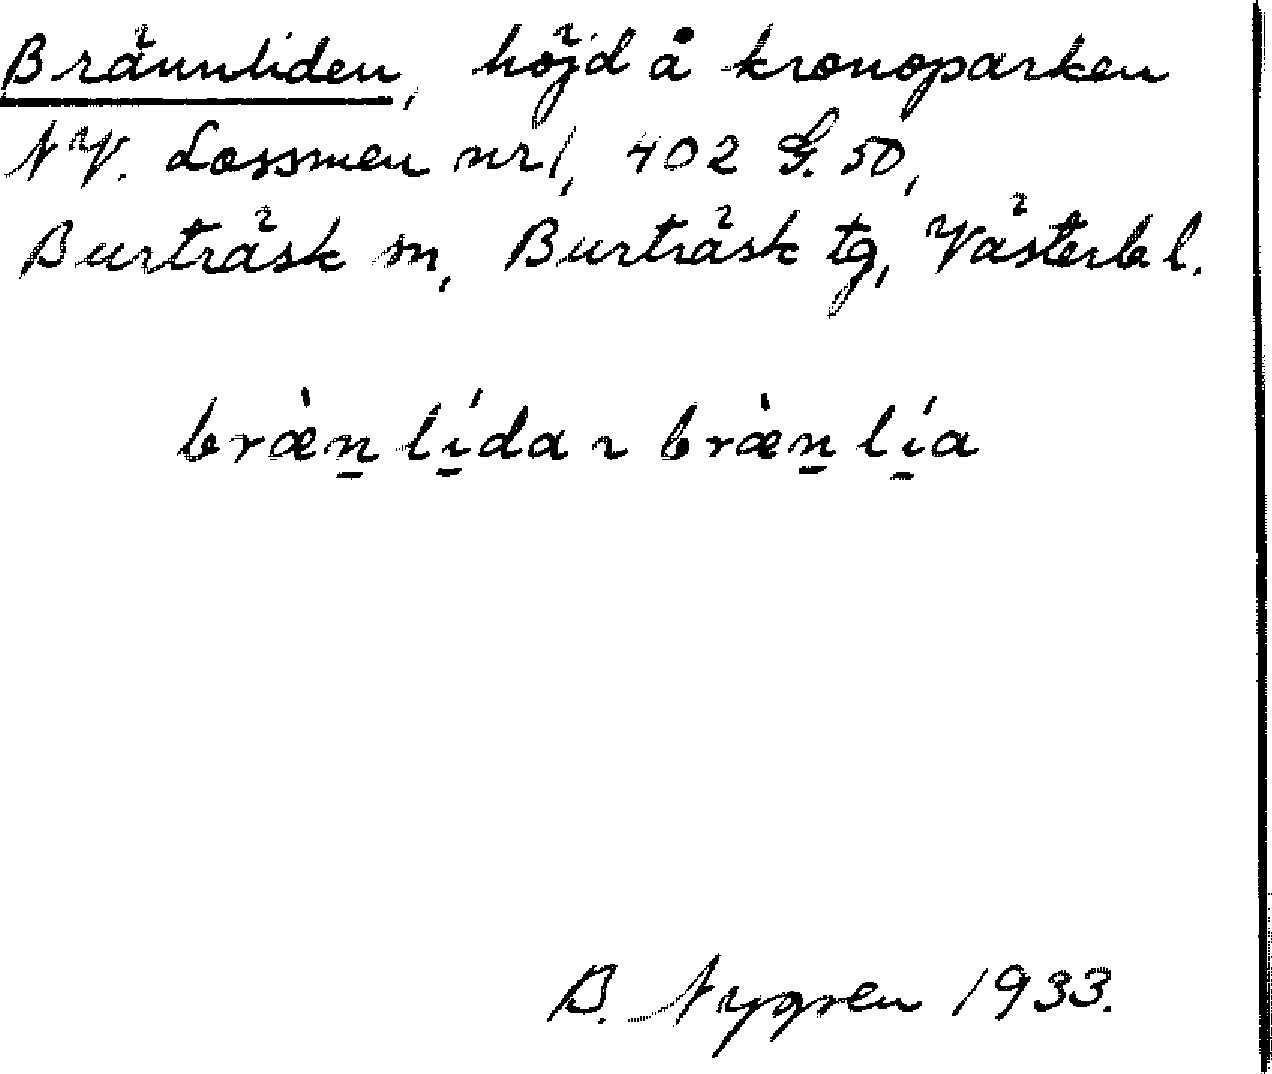 Brännliden, höjd å kronoparken
NV. Lossmen nr 1, 402 G. 50,
Burträsk sn, Burträsk tg, Västerb l.
bræ̀n̲ lí̲da ~ bræ̀n̲ lí̲a
B. Nygren 1933.